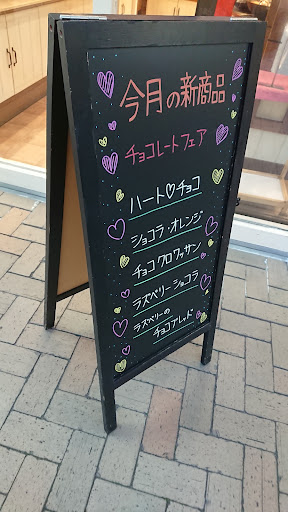 今月の新商品
チョコレートフェア
ハート♡チョコ
ショコラ・オレンジ
チョコクロワッサン
ラズベリーショコラ
ラズベリーの
チョコブレッド